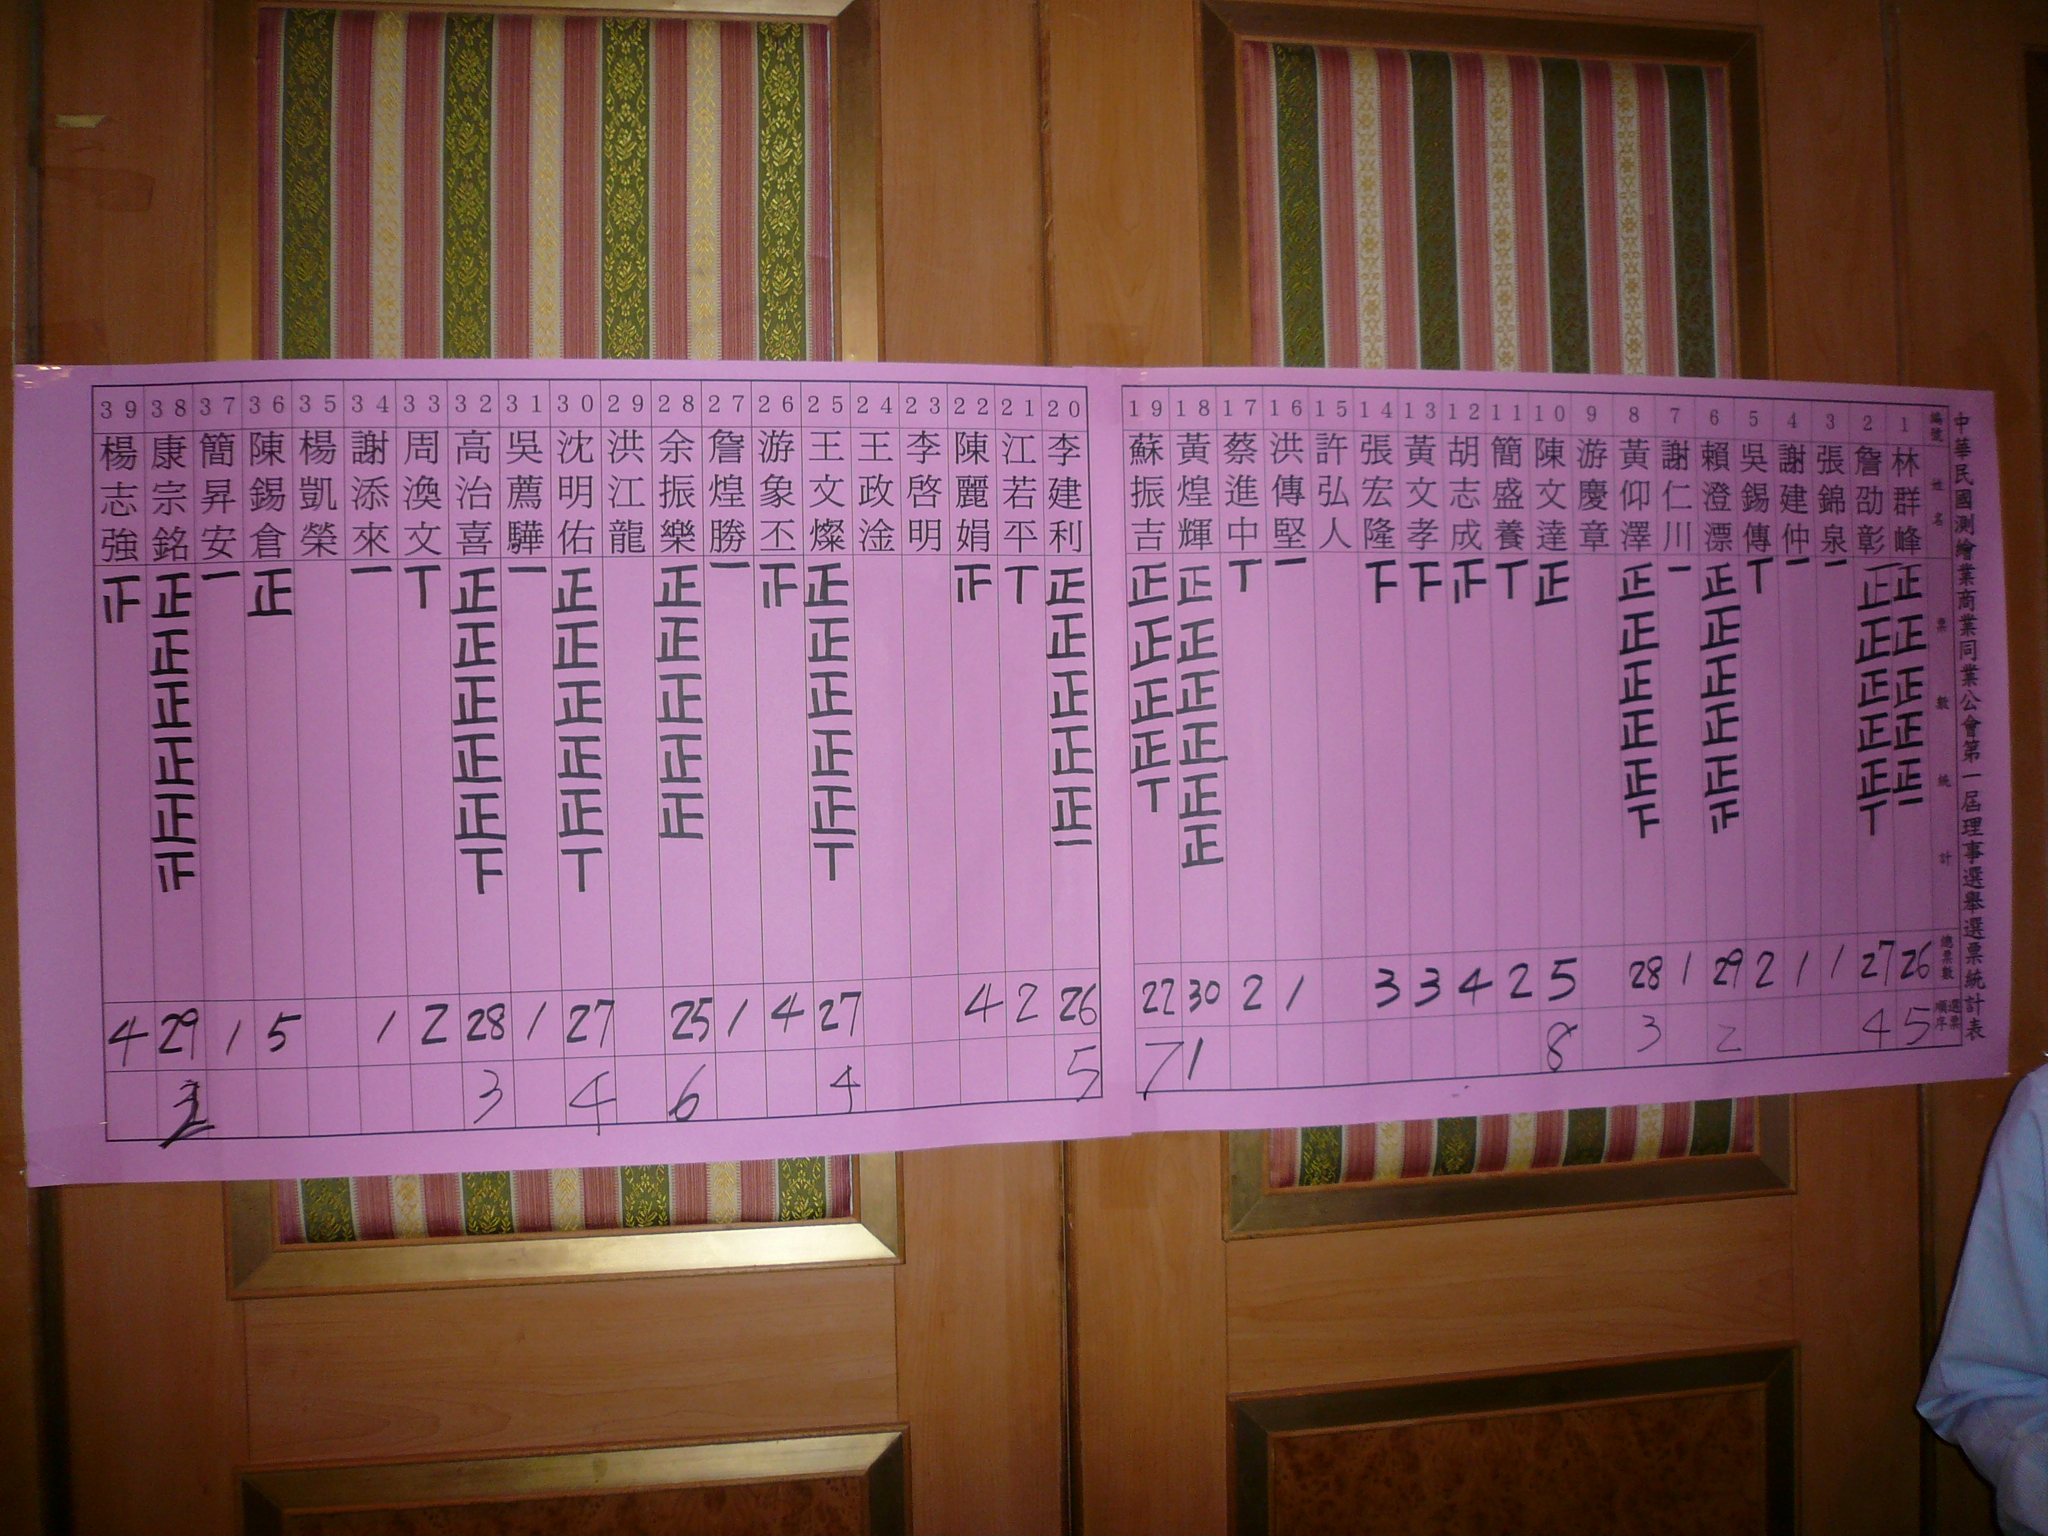 中華民國測繪業商業同業公會第一屆理事選舉選票統計表
編號 姓名 票數統計 總票數 選票順序
1 林群峰 正正正正正一 26 5
2 詹劭彰 正正正正正丅 27 4
3 張錦泉 一 1
4 謝建仲 一 1
5 吳錫傳 丅 2
6 賴澄漂 正正正正正 29 2
7 謝仁川 一 1
8 黃仰澤 正正正正正下 28 3
9 游慶章
10 陳文達 正 5 8
11 簡盛養 丅 2
12 胡志成 4
13 黃文孝 下 3
14 張宏隆 下 3
15 許弘人
16 洪傳堅 一 1
17 蔡進中 丅 2
18 黃煌輝 正正正正正正 30 1
19 蘇振吉 正正正正丅 22 7
20 李建利 正正正正正一 26 5
21 江若平 丅 2
22 陳麗娟 4
23 李啓明
24 王政淦
25 王文燦 正正正正正丅 27 4
26 游象丕 4
27 詹煌勝 一 1
28 余振樂 正正正正正 25 6
29 洪江龍
30 沈明佑 正正正正正丅 27 4
31 吳薦驊 一 1
32 高治喜 正正正正正下 28 3
33 周渙文 丅 2
34 謝添來 一 1
35 楊凱榮
36 陳錫倉 正 5
37 簡昇安 一 1
38 康宗銘 正正正正正 29 2
39 楊志強 4